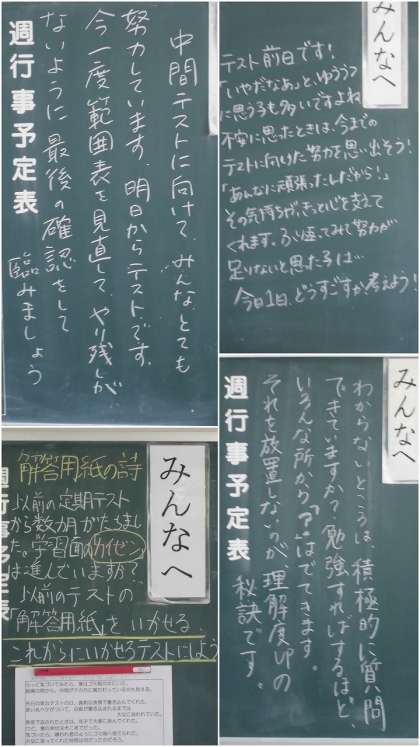 中間テストに向けて、みんなとても
努力しています。明日からテストです。
今一度範囲表を見直して、やり残しが
ないように最後の確認をして
臨みましょう
週行事予定表
みんなへ
テスト前日です!
「いやだなあ」と、ゆううつ
に思う子も多いですよね
不安に思ったときは、今までの
テストに向けた努力を思い出そう!
「あんなに頑張ったんだから!」
その気持ちが、きっと心を支えて
くれます。ふり返ってみて努力が
足りないと思った子は…
今日1日、どうすごすか考えよう!
みんなへ
解答用紙の詩
以前の定期テスト
から数カ月かたちまし
た。学習面の
は進んでいますか?
以前のテストの
「解答用紙」をいかせる、
これからにいかせるテストにしよう
週行事予定表
みんなへ
わからないところは、積極的に質問
できていますか?勉強すればするほど、
いろんな所から「?」はでてきます。
それを放置しないのが、理解度UPの
秘訣です。
週行事予定表